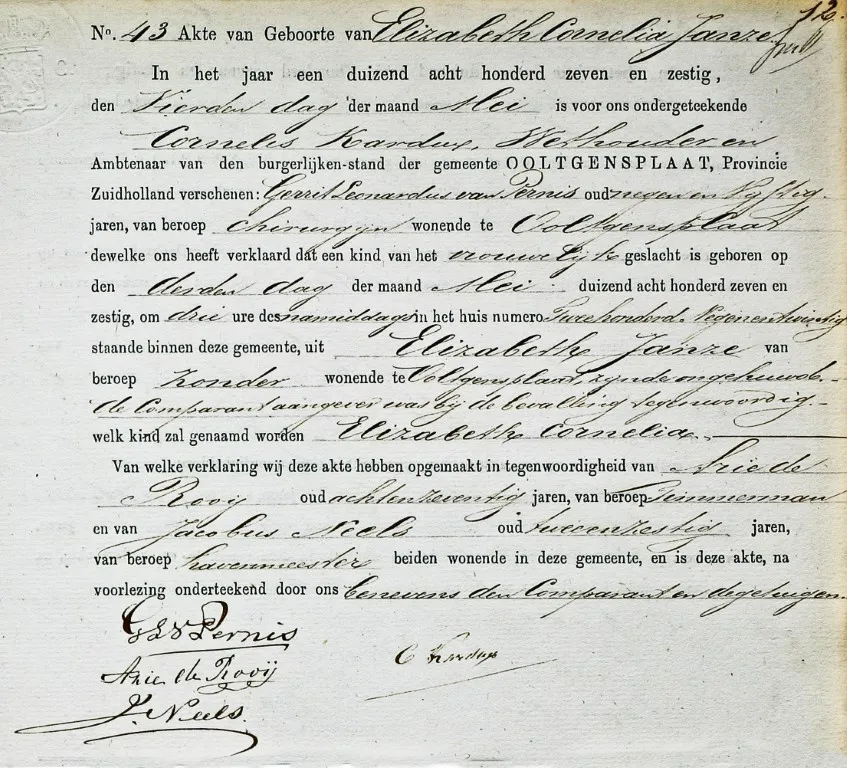 12.
No. 43 Akte van Geboorte van Elizabeth Cornelia Janze
In het jaar een duizend acht honderd zeven en zestig,
den Vierden dag der maand Mei is voor ons ondergeteekende
Cornelis Kardux, Wethouder en
Ambtenaar van den burgerlijken-stand der gemeente OOLTGENSPLAAT, Provincie
Zuidholland verschenen: Gerrit Leonardus van Pernis oud negen en Vijftig
jaren, van beroep chirurgijn wonende te Ooltgensplaat
dewelke ons heeft verklaard dat een kind van het vrouwelijk geslacht is geboren op
den derden dag der maand Mei duizend acht honderd zeven en
zestig, om drie ure des namiddags in het huis numero Tweehonderd Negenentwintig
staande binnen deze gemeente, uit Elizabeth Janze van
beroep zonder wonende te Ooltgensplaat, zijnde ongehuwd.
de Comparant aangever was bij de bevalling tegenwoordig.
welk kind zal genaamd worden Elizabeth Cornelia.
Van welke verklaring wij deze akte hebben opgemaakt in tegenwoordigheid van Arie de
Rooij oud achtenzeventig jaren, van beroep Timmerman
en van Jacobus Neels oud tweeenzestig jaren,
van beroep havenmeester beiden wonende in deze gemeente, en is deze akte, na
voorlezing onderteekend door ons benevens den Comparant en de getuigen.
G L v Pernis
Arie de Rooij
C Kardux
J. Neels.